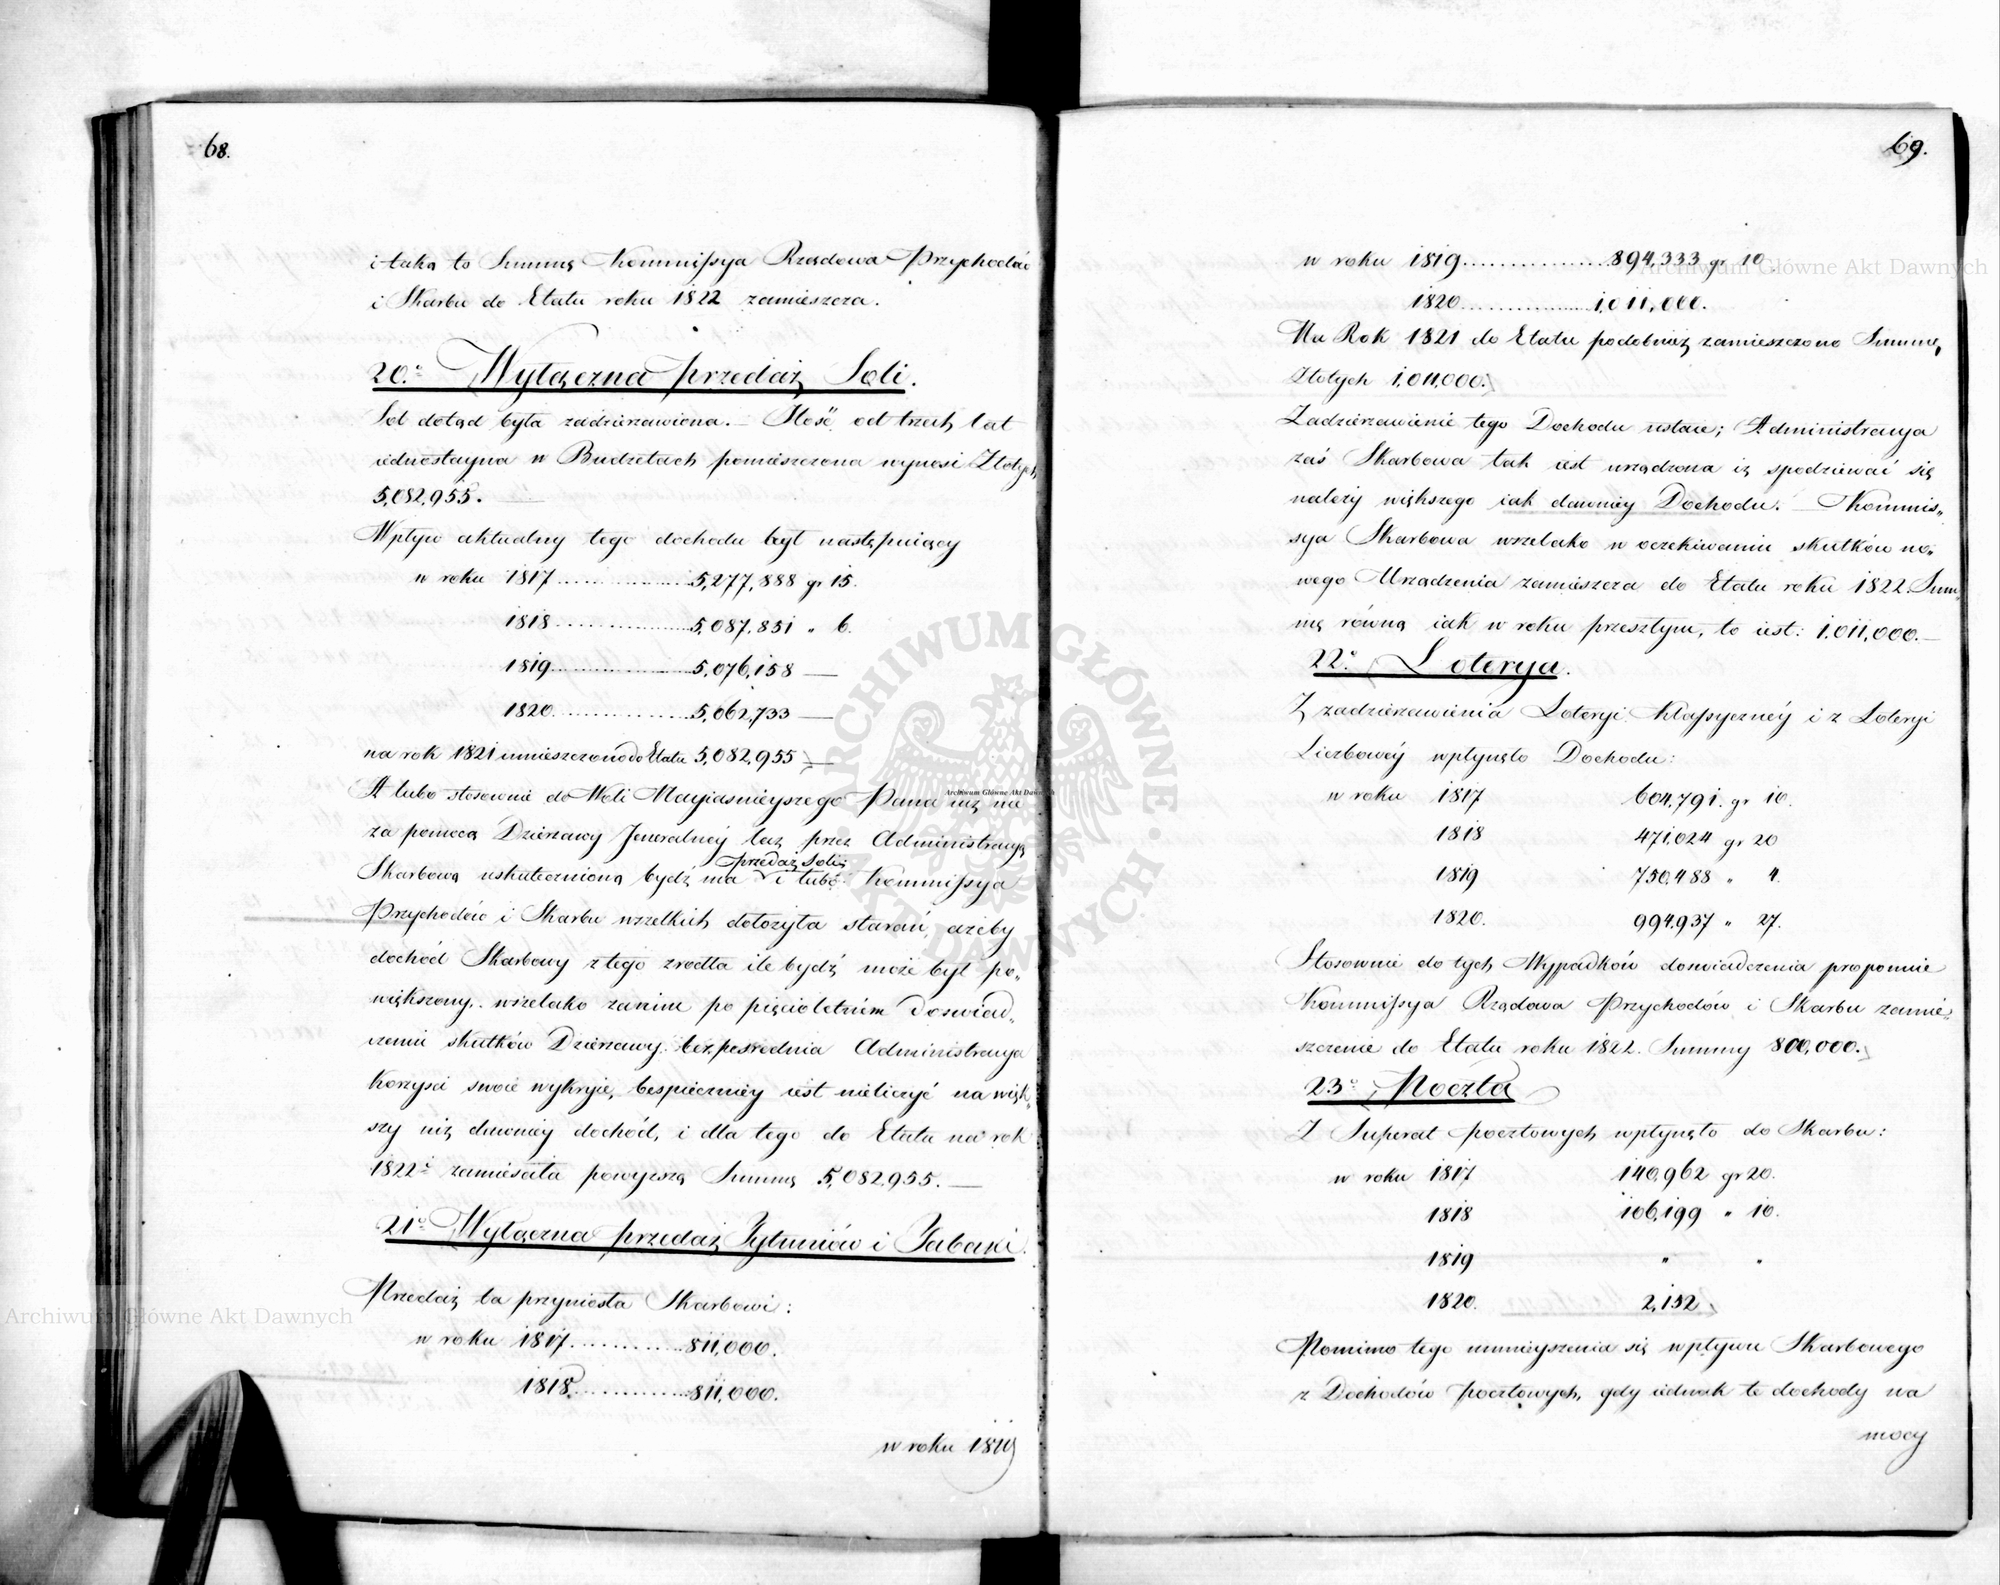 68.
i taką to Summę Kommissya Rządowa Przychodów
i Skarbu do Etatu roku 1822 zamieszcza.
20.o Wyłączna przedaż Soli.
Sol dotąd była zadzierżawiona. – Ilość od trzech lat
iednostayna w Budżetach pomieszczona wynosi Złotych
5,082,955. —
Wpływ aktualny tego dochodu był następuiący
w roku 1817 ................ 5,277,888 gr 15.
1818 ................ 5,087,851 „ 6.
1819 ................ 5,076,158 —
1820 ................ 5,062,733 —
na rok 1821 umieszczono do Etatu 5,082,955 —
A lubo stosownie do Woli Nayiaśnieyszego Pana iuż nie
za pomocą Dzierżawy Jeneralnéy lecz przez Administracyą
Skarbową uskutecznioną bydź ma przedaż Soli; i lubo Kommissya
Przychodów i Skarbu wszelkich dołożyła starań, ażeby
dochód Skarbowy z tego źrodła ile bydź może był po„
większony, wszelako zanim po pięcioletniém doswiad„
czeniu skutków Dzierżawy, bezpośrednia Administracya
korzyści swoie wykryie, bespieczniey iest nieliczyć na więk„
szy niż dawniey dochód, i dla tego do Etatu na rok
1822.i zamieściła powyższą Summę 5,082,955. —
21.o Wyłączna przedaż Tytuniów i Tabaki.
Przedaż ta przyniosła Skarbowi:
w roku 1817 ............ 811,000.
1818 ............ 811,000.
w roku 1819
69.
w roku 1819 ................ 894,333 gr 10
1820 ................ 1,011,000.
Na Rok 1821 do Etatu podobnież zamieszczono Summę
Złotych 1,011,000.
Zadzierżawienie tego Dochodu ustaie; Administracya
zaś Skarbowa tak iest urządzona iż spodziewać się
należy większego iak dawniey Dochodu. – Kommis„
sya Skarbowa wszelako w oczekiwaniu skutków no„
wego Urządzenia zamieszcza do Etatu roku 1822. Sum„
mę równą iak w roku przeszłym, to iest: 1,011,000. —
22.o Loterya.
Z zadzierżawienia Loteryi Klassycznéy i z Loteryi
Liczbowéy wpłynęło Dochodu:
w roku 1817 604,791. gr 10.
1818 471,024 gr 20
1819 750,488 „ 4.
1820. 994,937 „ 27.
Stosownie do tych Wypadków doswiadczenia proponuie
Kommissya Rządowa Przychodów i Skarbu zamie„
szczenie do Etatu roku 1822. Summy 800,000.
23.o Poczta
Z Superat pocztowych wpłynęło do Skarbu:
w roku 1817 140,962 gr 20.
1818 106,199 „ 10.
1819 „ „
1820. 2,152
Pomimo tego umnieyszenia się wpływu Skarbowego
z Dochodów pocztowych, gdy iednak te dochody na
mocy
Archiwum Główne Akt Dawnych
Archiwum Główne Akt Dawnych
Archiwum Główne Akt Dawnych
ARCHIWUM GŁÓWNE AKT DAWNYCH